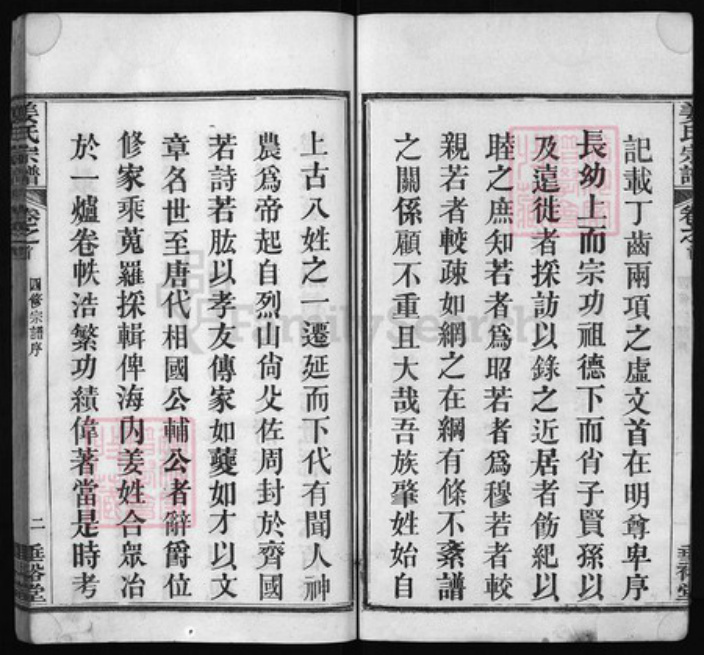 姜氏宗譜
卷之首
垂裕堂
記載丁齒兩項之虛文首在明尊卑序
長幼上而宗功祖德下而肖子賢孫以
及遠徙者採訪以錄之近居者飭紀以
睦之庶知若者為昭若者為穆若者較
親若者較疎如網之在綱有條不紊譜
之關係顧不重且大哉吾族肇姓始自
上古八姓之一遷延而下代有聞人神
農爲帝起自烈山尙父佐周封於齊國
若詩若肱以孝友傳家如夔如才以文
章名世至唐代相國公輔公者辭爵位
修家乘蒐羅採輯俾海內姜姓合眾冶
於一爐卷帙浩繁功績偉著當是時考
姜氏宗譜
卷之首
四修宗譜序
二
垂裕堂
FamilySearch